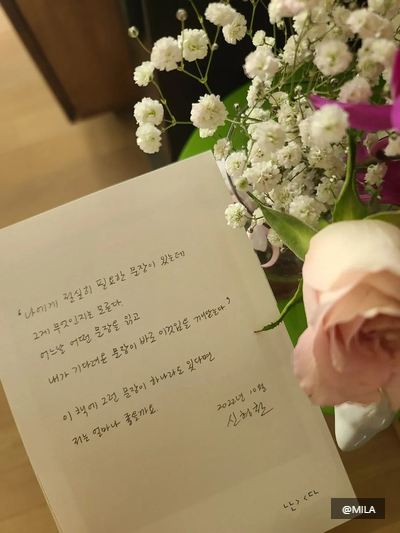 '나에게 절실히 필요한 문장이 있는데
그게 무엇인지는 모른다.
어느날 어떤 문장을 읽고
내가 기다려온 문장이 바로 이것임을 깨닫는다'
이 책에 그런 문장이 하나라도 있다면
저는 얼마나 좋을까요.
2022년 10월
@MILA